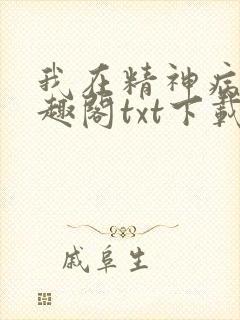 我在精神病
趣阁txt下载
戚阜生